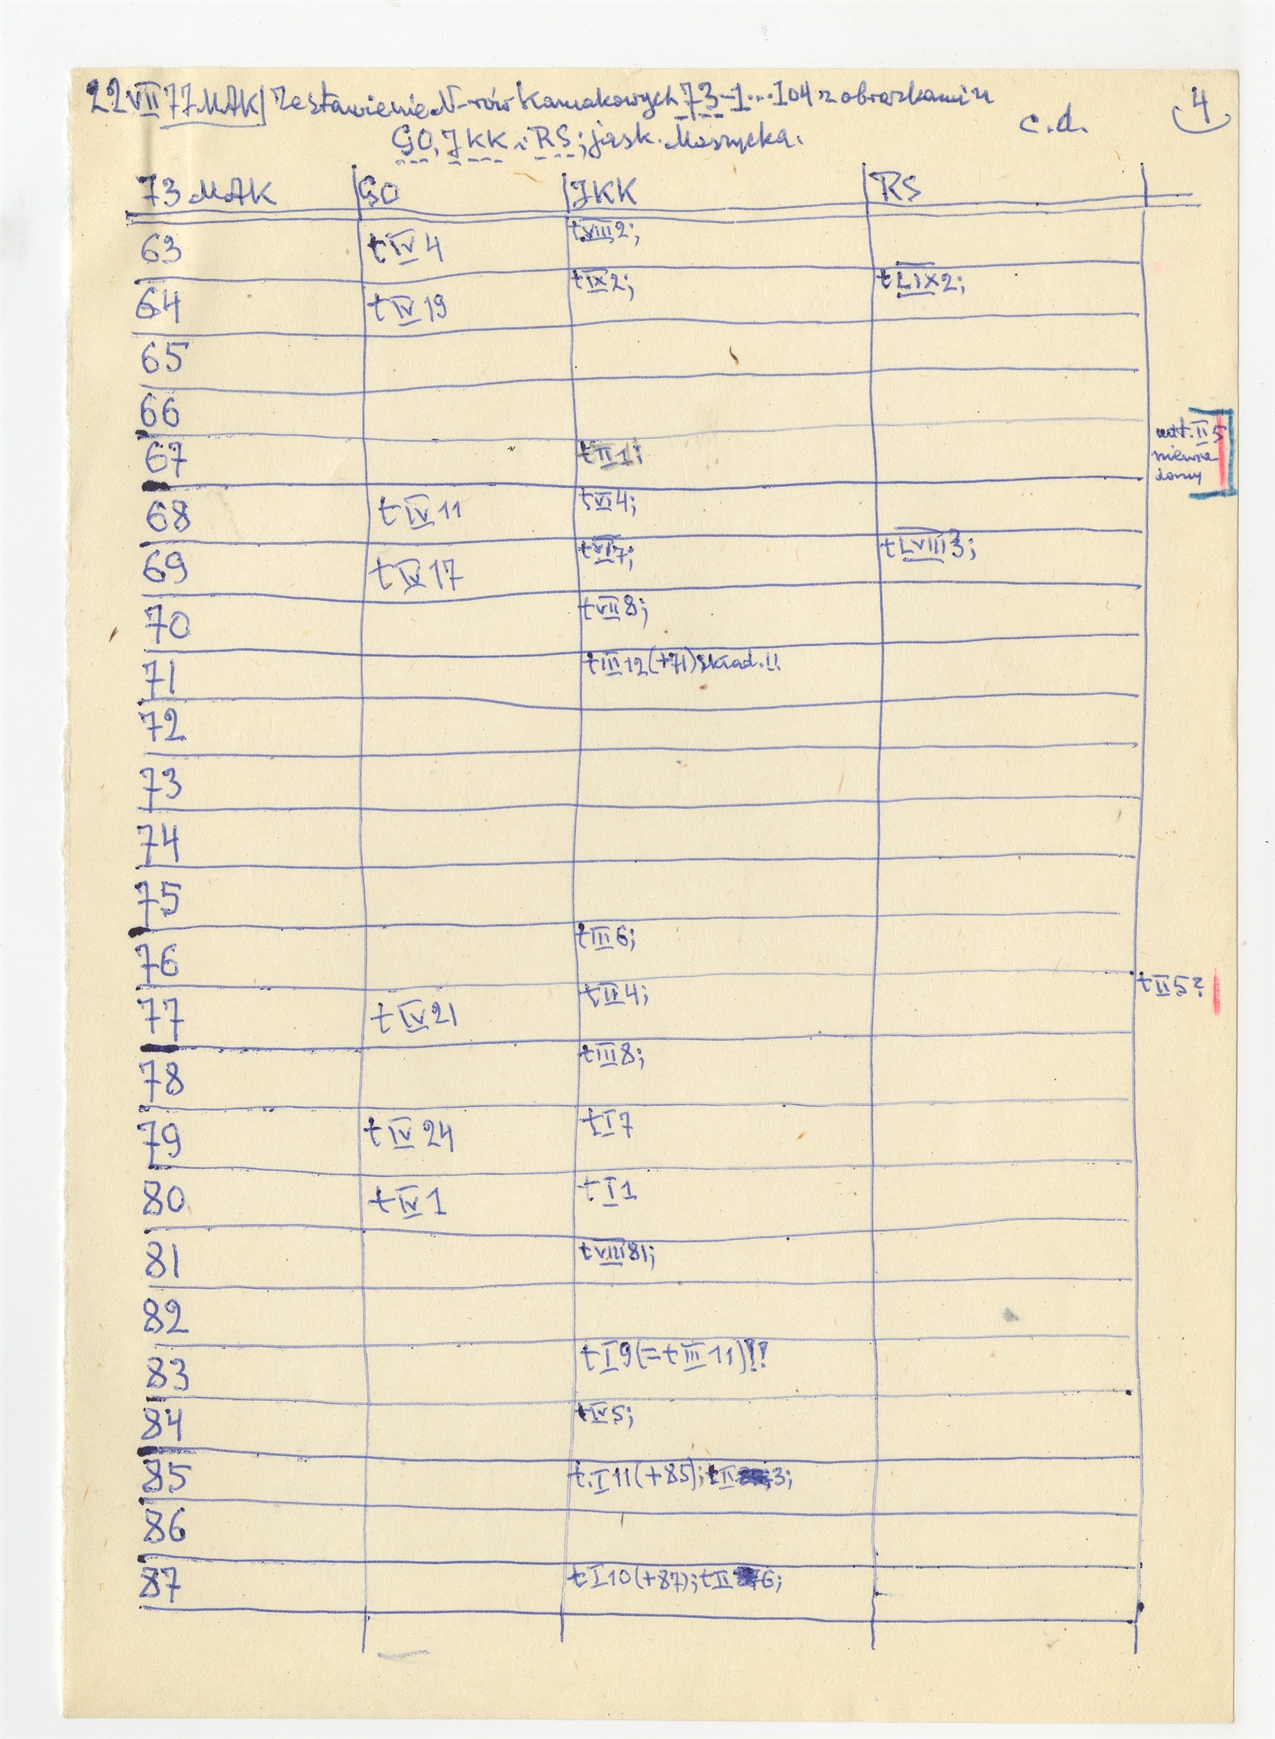 22 VII 77 MAK | Zestawienie N-rów Kamakowych 73-1...104 z obrazkami u
GO, JKK i RS; jask. Maszycka.
c.d.
4
73 MAK GO JKK RS
63 t IV 4 t VIII 2;
64 t IV 19 t IX 2; t LIX 2;
65
66
67 t II 1; t. II 5
68 t IV 11 t VI 4;
69 t IV 17 t VI 7; t LVIII 3;
70 t VII 8;
71 t III 12 (+71) skład.!!
72
73
74
75
76 t III 6;
77 t IV 21 t II 4; t II 5?
78 t III 8;
79 t IV 24 t I 7
80 t IV 1 t I 1
81 t VIII 81;
82
83 t I 9 (= t III 11)!!
84 t IV 5;
85 t. I 11 (+85); t II 3;
86
87 t I 10 (+87); t II 6;